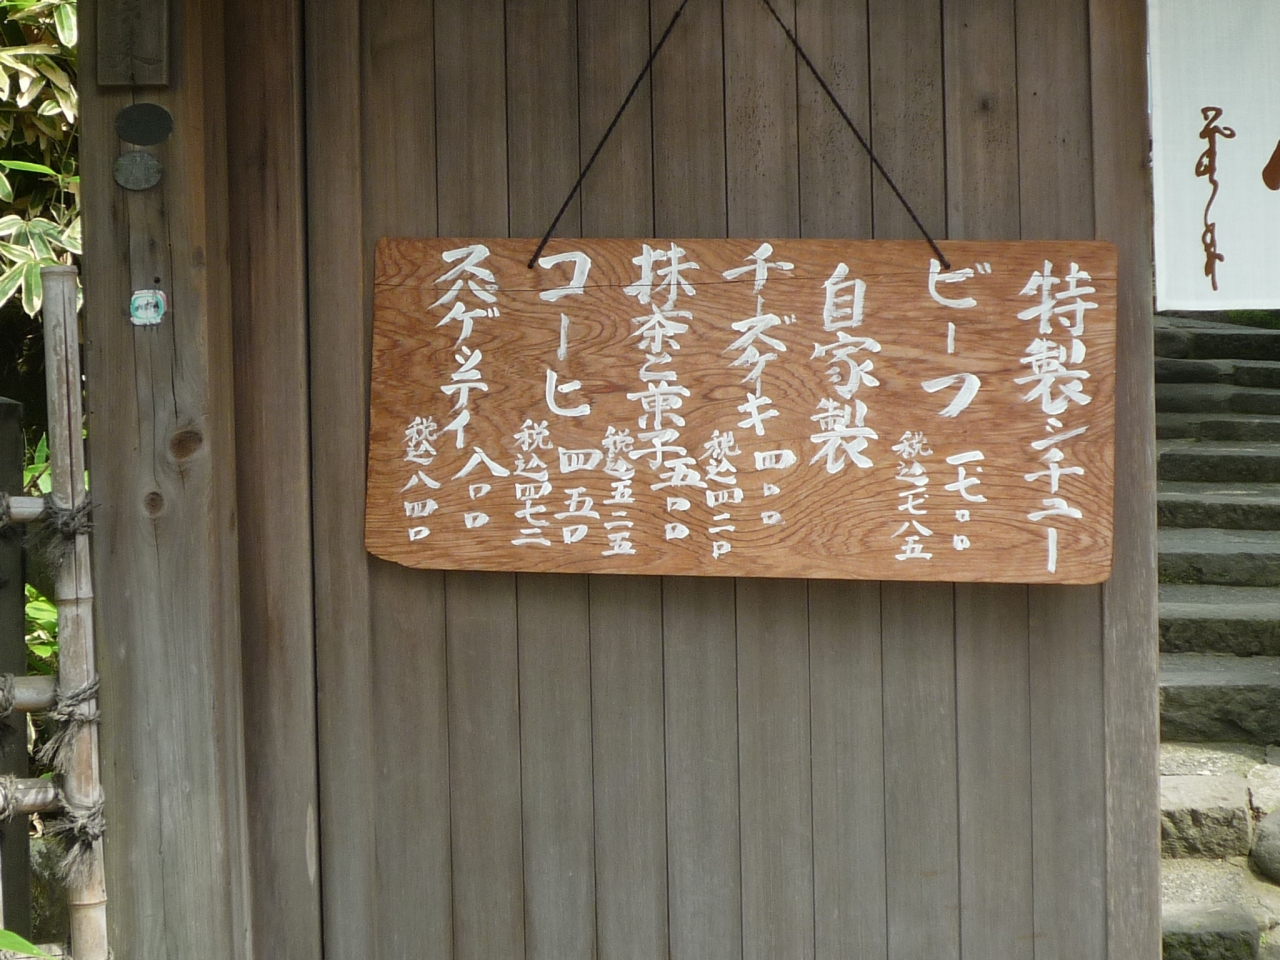 特製シチュー
ビーフ 一七〇〇
税込一七八五
自家製
チーズケーキ 四〇〇
税込四二〇
抹茶と菓子 五〇〇
税込五二五
コーヒ 四五〇
税込四七二
スパゲッティ 八〇〇
税込八四〇